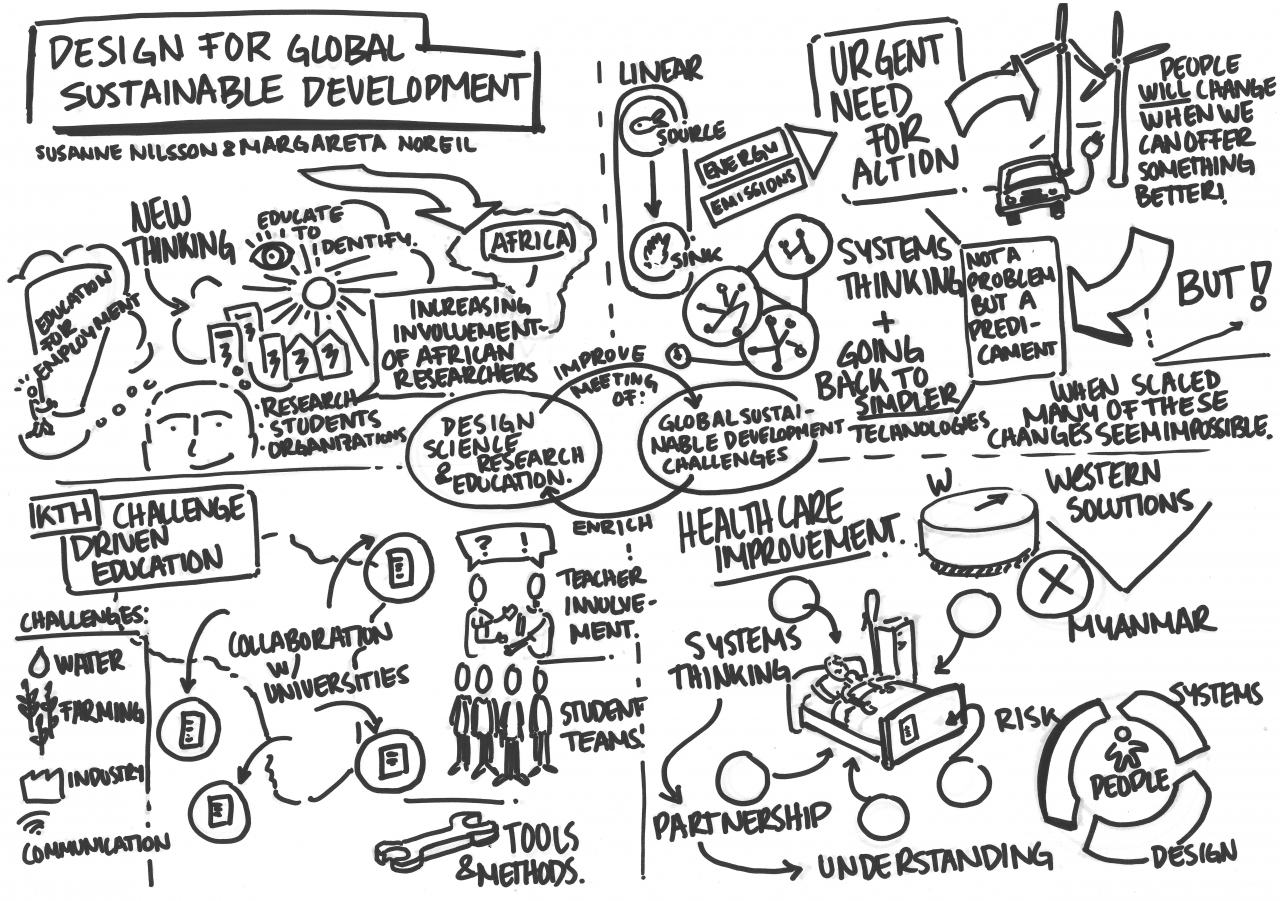 DESIGN FOR GLOBAL
SUSTAINABLE DEVELOPMENT
SUSANNE NILSSON & MARGARETA NOREIL
NEW
THINKING
EDUCATE
TO
IDENTIFY.
AFRICA
EDUCATION
FOR
EMPLOYMENT
INCREASING
INVOLVEMENT
OF AFRICAN
RESEARCHERS
• RESEARCH
• STUDENTS
• ORGANIZATIONS
LINEAR
SOURCE
SINK
ENERGY
EMISSIONS
URGENT
NEED
FOR
ACTION
PEOPLE
WILL CHANGE
WHEN WE
CAN OFFER
SOMETHING
BETTER!
SYSTEMS
THINKING
+
GOING
BACK TO
SIMPLER
TECHNOLOGIES
NOT A
PROBLEM
BUT A
PREDI-
CAMENT
BUT!
WHEN SCALED
MANY OF THESE
CHANGES SEEM IMPOSSIBLE.
IMPROVE
MEETING
OF:
DESIGN
SCIENCE
RESEARCH
& EDUCATION.
GLOBAL SUSTAI-
NABLE DEVELOPMENT
CHALLENGES
ENRICH
KTH CHALLENGE
DRIVEN
EDUCATION
CHALLENGES:
WATER
FARMING
INDUSTRY
COMMUNICATION
COLLABORATION
W/
UNIVERSITIES
? !
TEACHER
INVOLVE-
MENT.
STUDENT
TEAMS.
TOOLS
& METHODS.
HEALTHCARE
IMPROVEMENT.
W
WESTERN
SOLUTIONS
MYANMAR
SYSTEMS
THINKING
PARTNERSHIP
UNDERSTANDING
RISK
SYSTEMS
PEOPLE
DESIGN